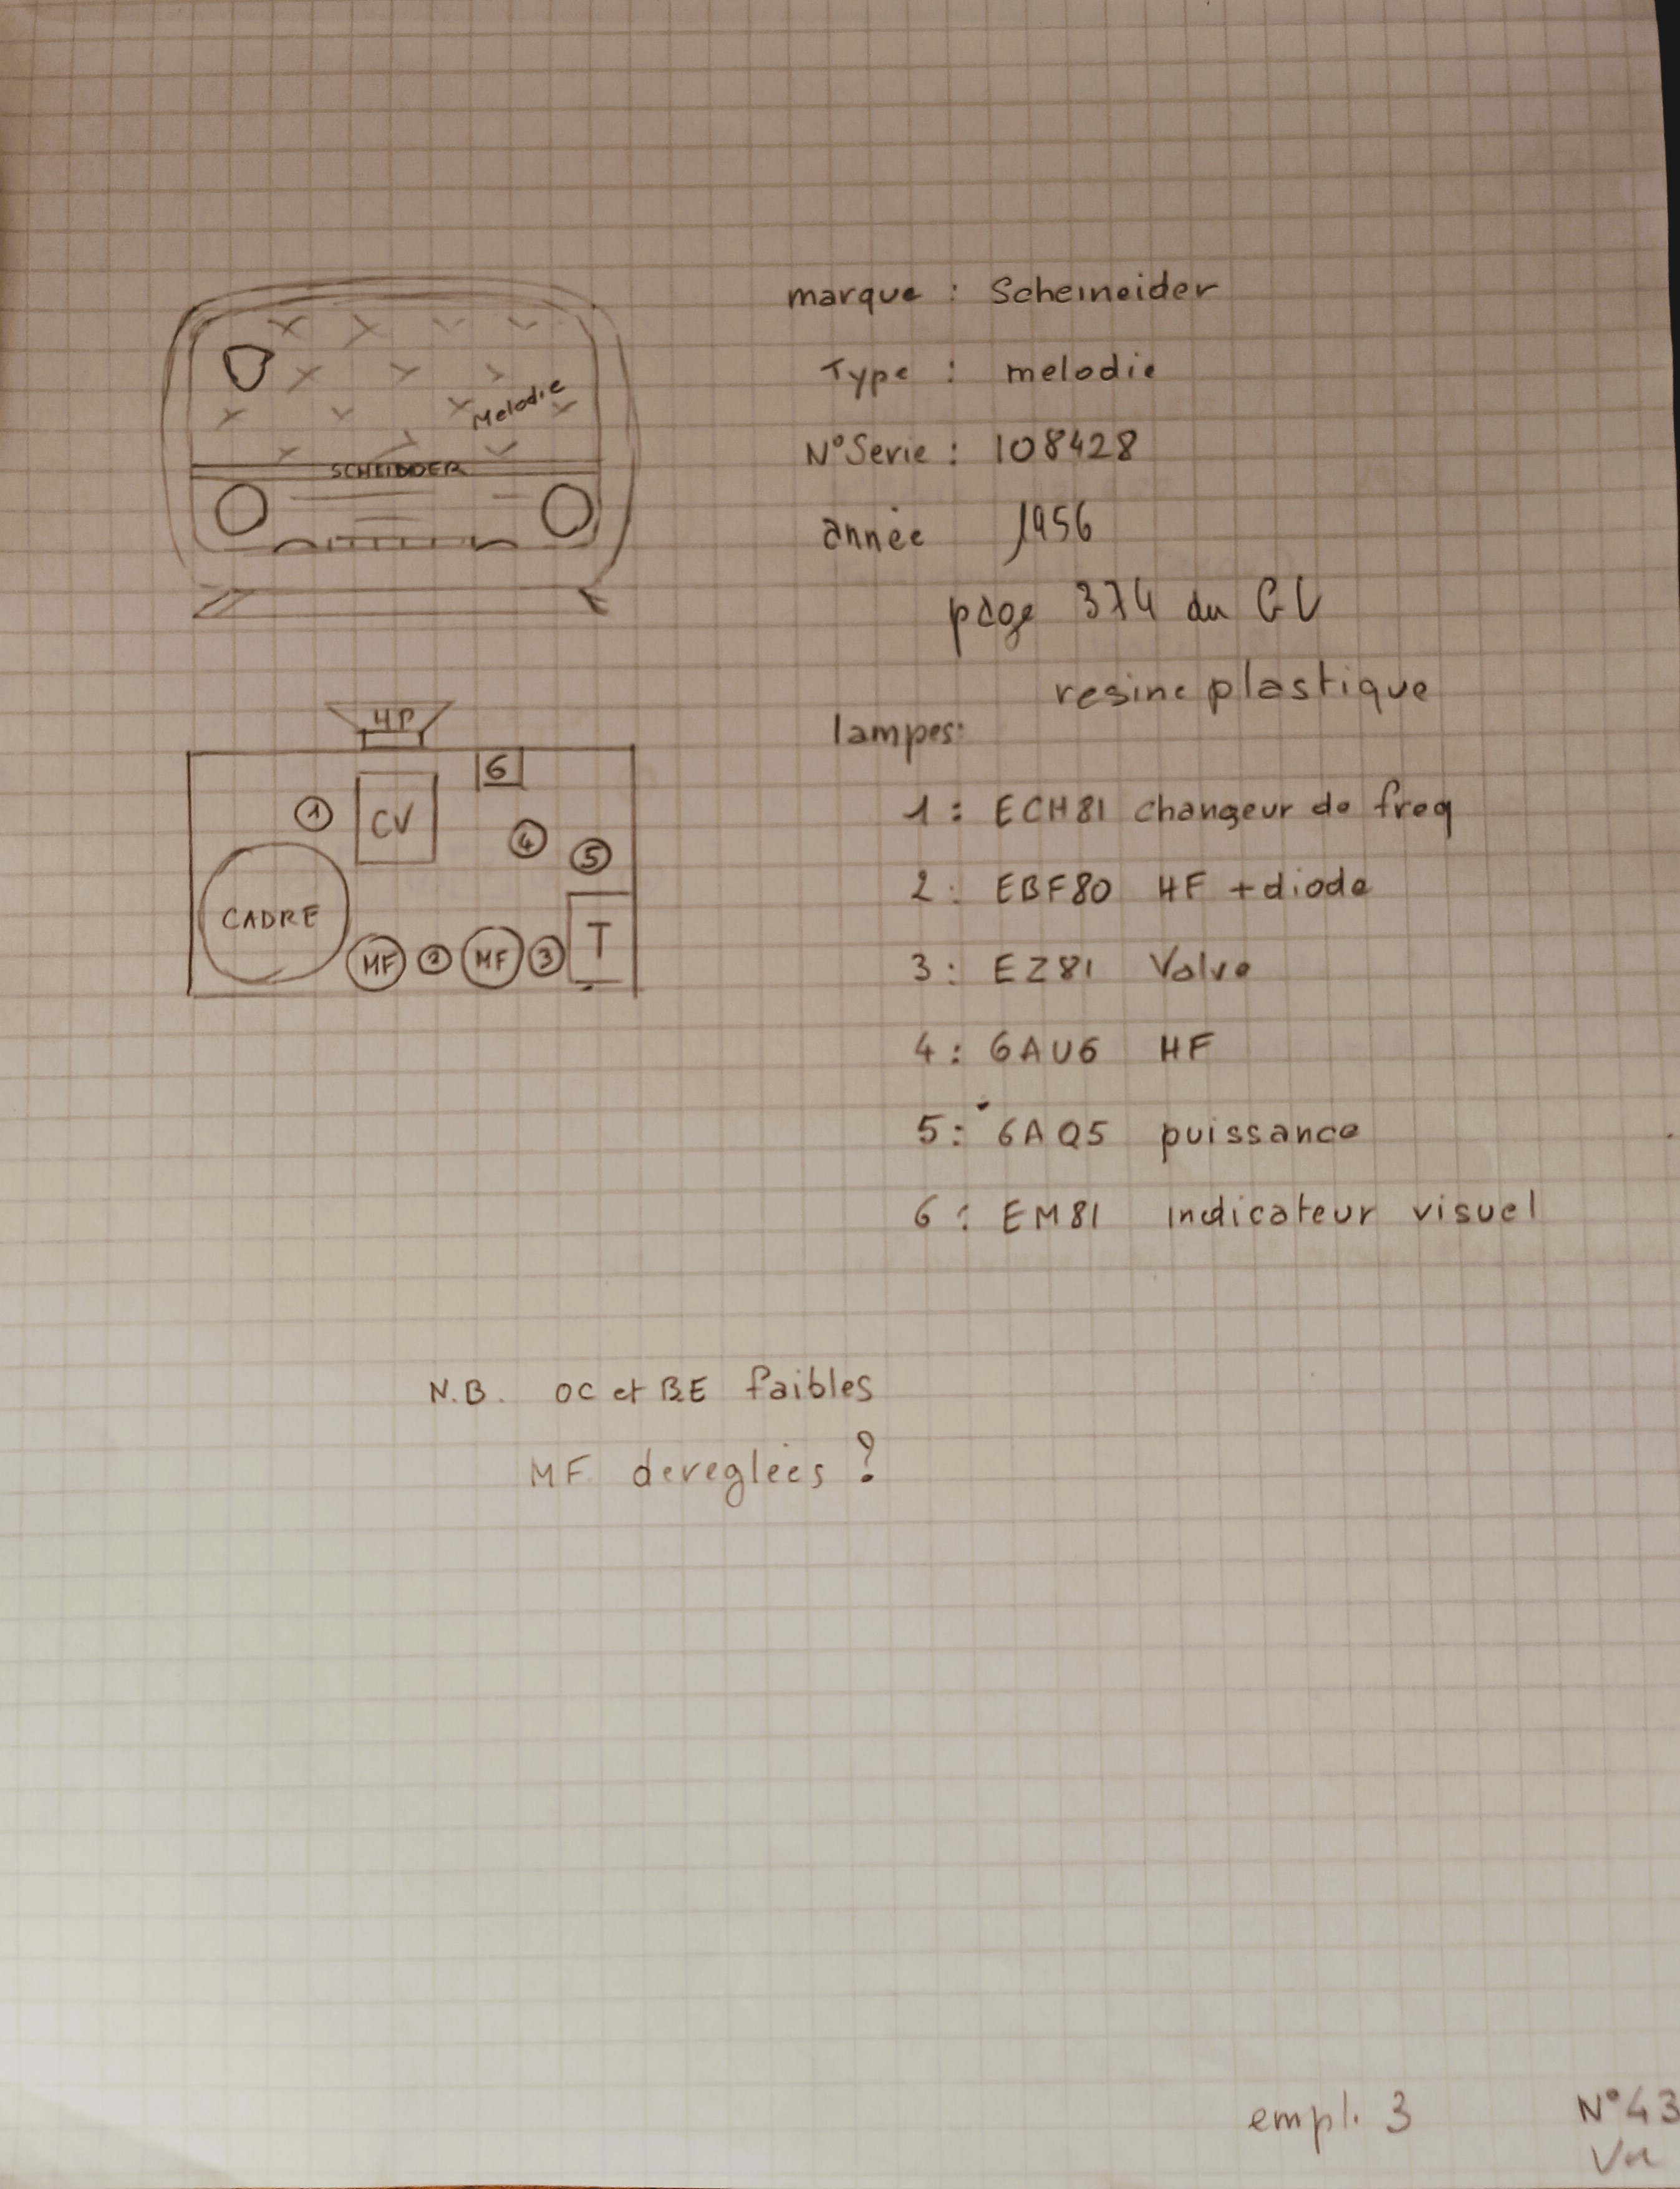 Melodie
SCHEIDDER
marque : Scheineider
Type : melodie
N° Serie : 108428
année 1956
page 374 du GL
resine plastique
HP
6
1
CV
4
5
CADRE
MF
2
MF
3
T
lampes:
1 : ECH81 changeur de freq
2 : EBF80 HF + diode
3 : EZ81 Valve
4 : 6AU6 HF
5 : 6AQ5 puissance
6 : EM81 indicateur visuel
N.B. OC et BE faibles
MF dereglées ?
empl. 3
N°43
Vu